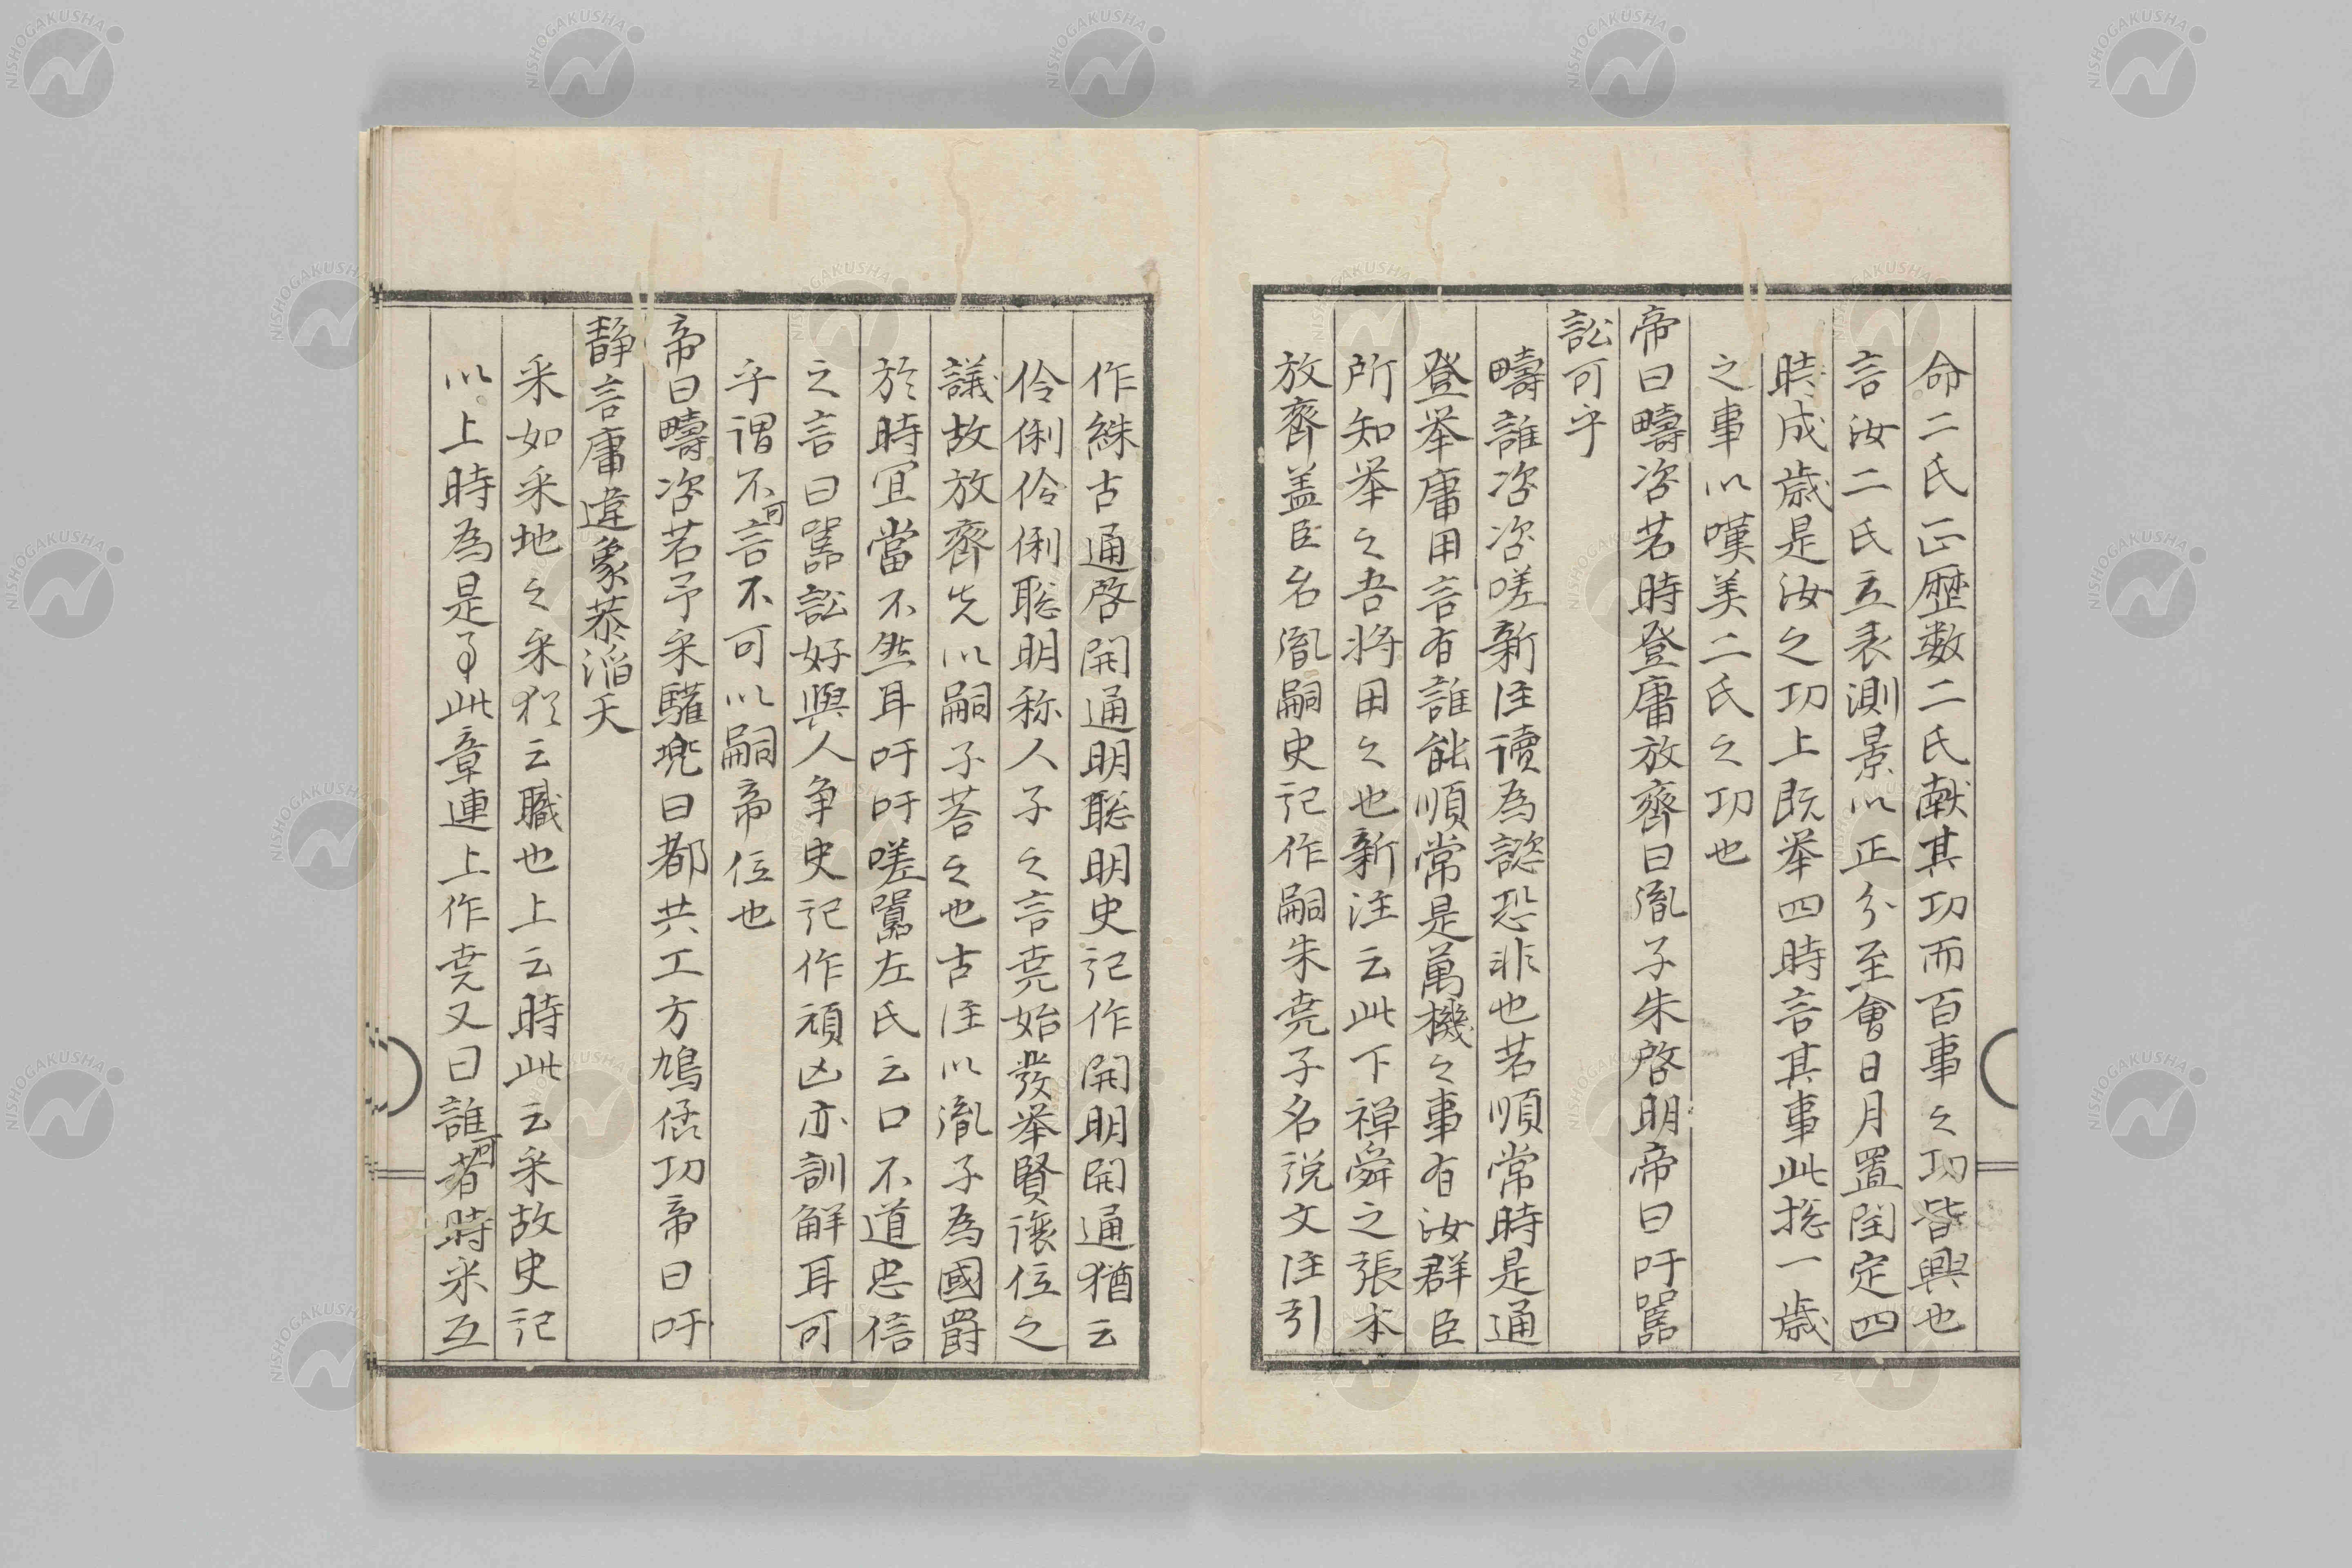 命二氏正歴数二氏献其功而百事之功皆興也
言汝二氏立表測景以正分至會日月置閏定四
時成歳是汝之功上既挙四時言其事此揔一歳
之事以嘆美二氏之功也
帝曰疇咨若時登庸放齊曰胤子朱啓明帝曰吁嚚
訟可乎
疇誰咨咨嗟新注讀為諮恐非也若順常時是通
登挙庸用言有誰能順常是萬機之事有汝群臣
所知挙之吾将用之也新注云此下禅舜之張本
放齊盖臣名胤嗣史記作嗣朱尭子名説文注引
作絑古通啓開通明聡明史記作開明開通猶云
伶俐伶俐聡明称人子之言尭始發挙賢讓位之
議故放齊先以嗣子荅之也古注以胤子為國爵
於時冝當不然耳吁吁嗟嚚左氏云口不道忠信
之言曰嚚訟好與人争史記作頑凶亦訓解耳可
乎謂不可言不可以嗣帝位也
帝曰疇咨若予采驩兠曰都共工方鳩僝功帝曰吁
静言庸違象恭滔天
采如采地之采猶云職也上云時此云采故史記
以上時為是事此章連上作尭又曰誰可者時采互
NISHOGAKUSHA